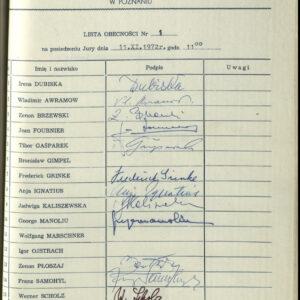 W POZNANIU
LISTA OBECNOŚCI Nr 1
na posiedzeniu Jury dnia 11.XI.1972r. godz. 11⁰⁰
Imię i nazwisko Podpis Uwagi
Irena DUBISKA Dubiska
Wladimir AWRAMOW
Zenon BRZEWSKI
Jean FOURNIER
Tibor GAŠPAREK
Bronisław GIMPEL
Frederick GRINKE Frederick Grinke
Anja IGNATIUS Anja Ignatius
Jadwiga KALISZEWSKA
George MANOLIU
Wolfgang MARSCHNER
Igor OJSTRACH
Zenon PŁOSZAJ
Franz SAMOHYL
Werner SCHOLZ W. Scholz